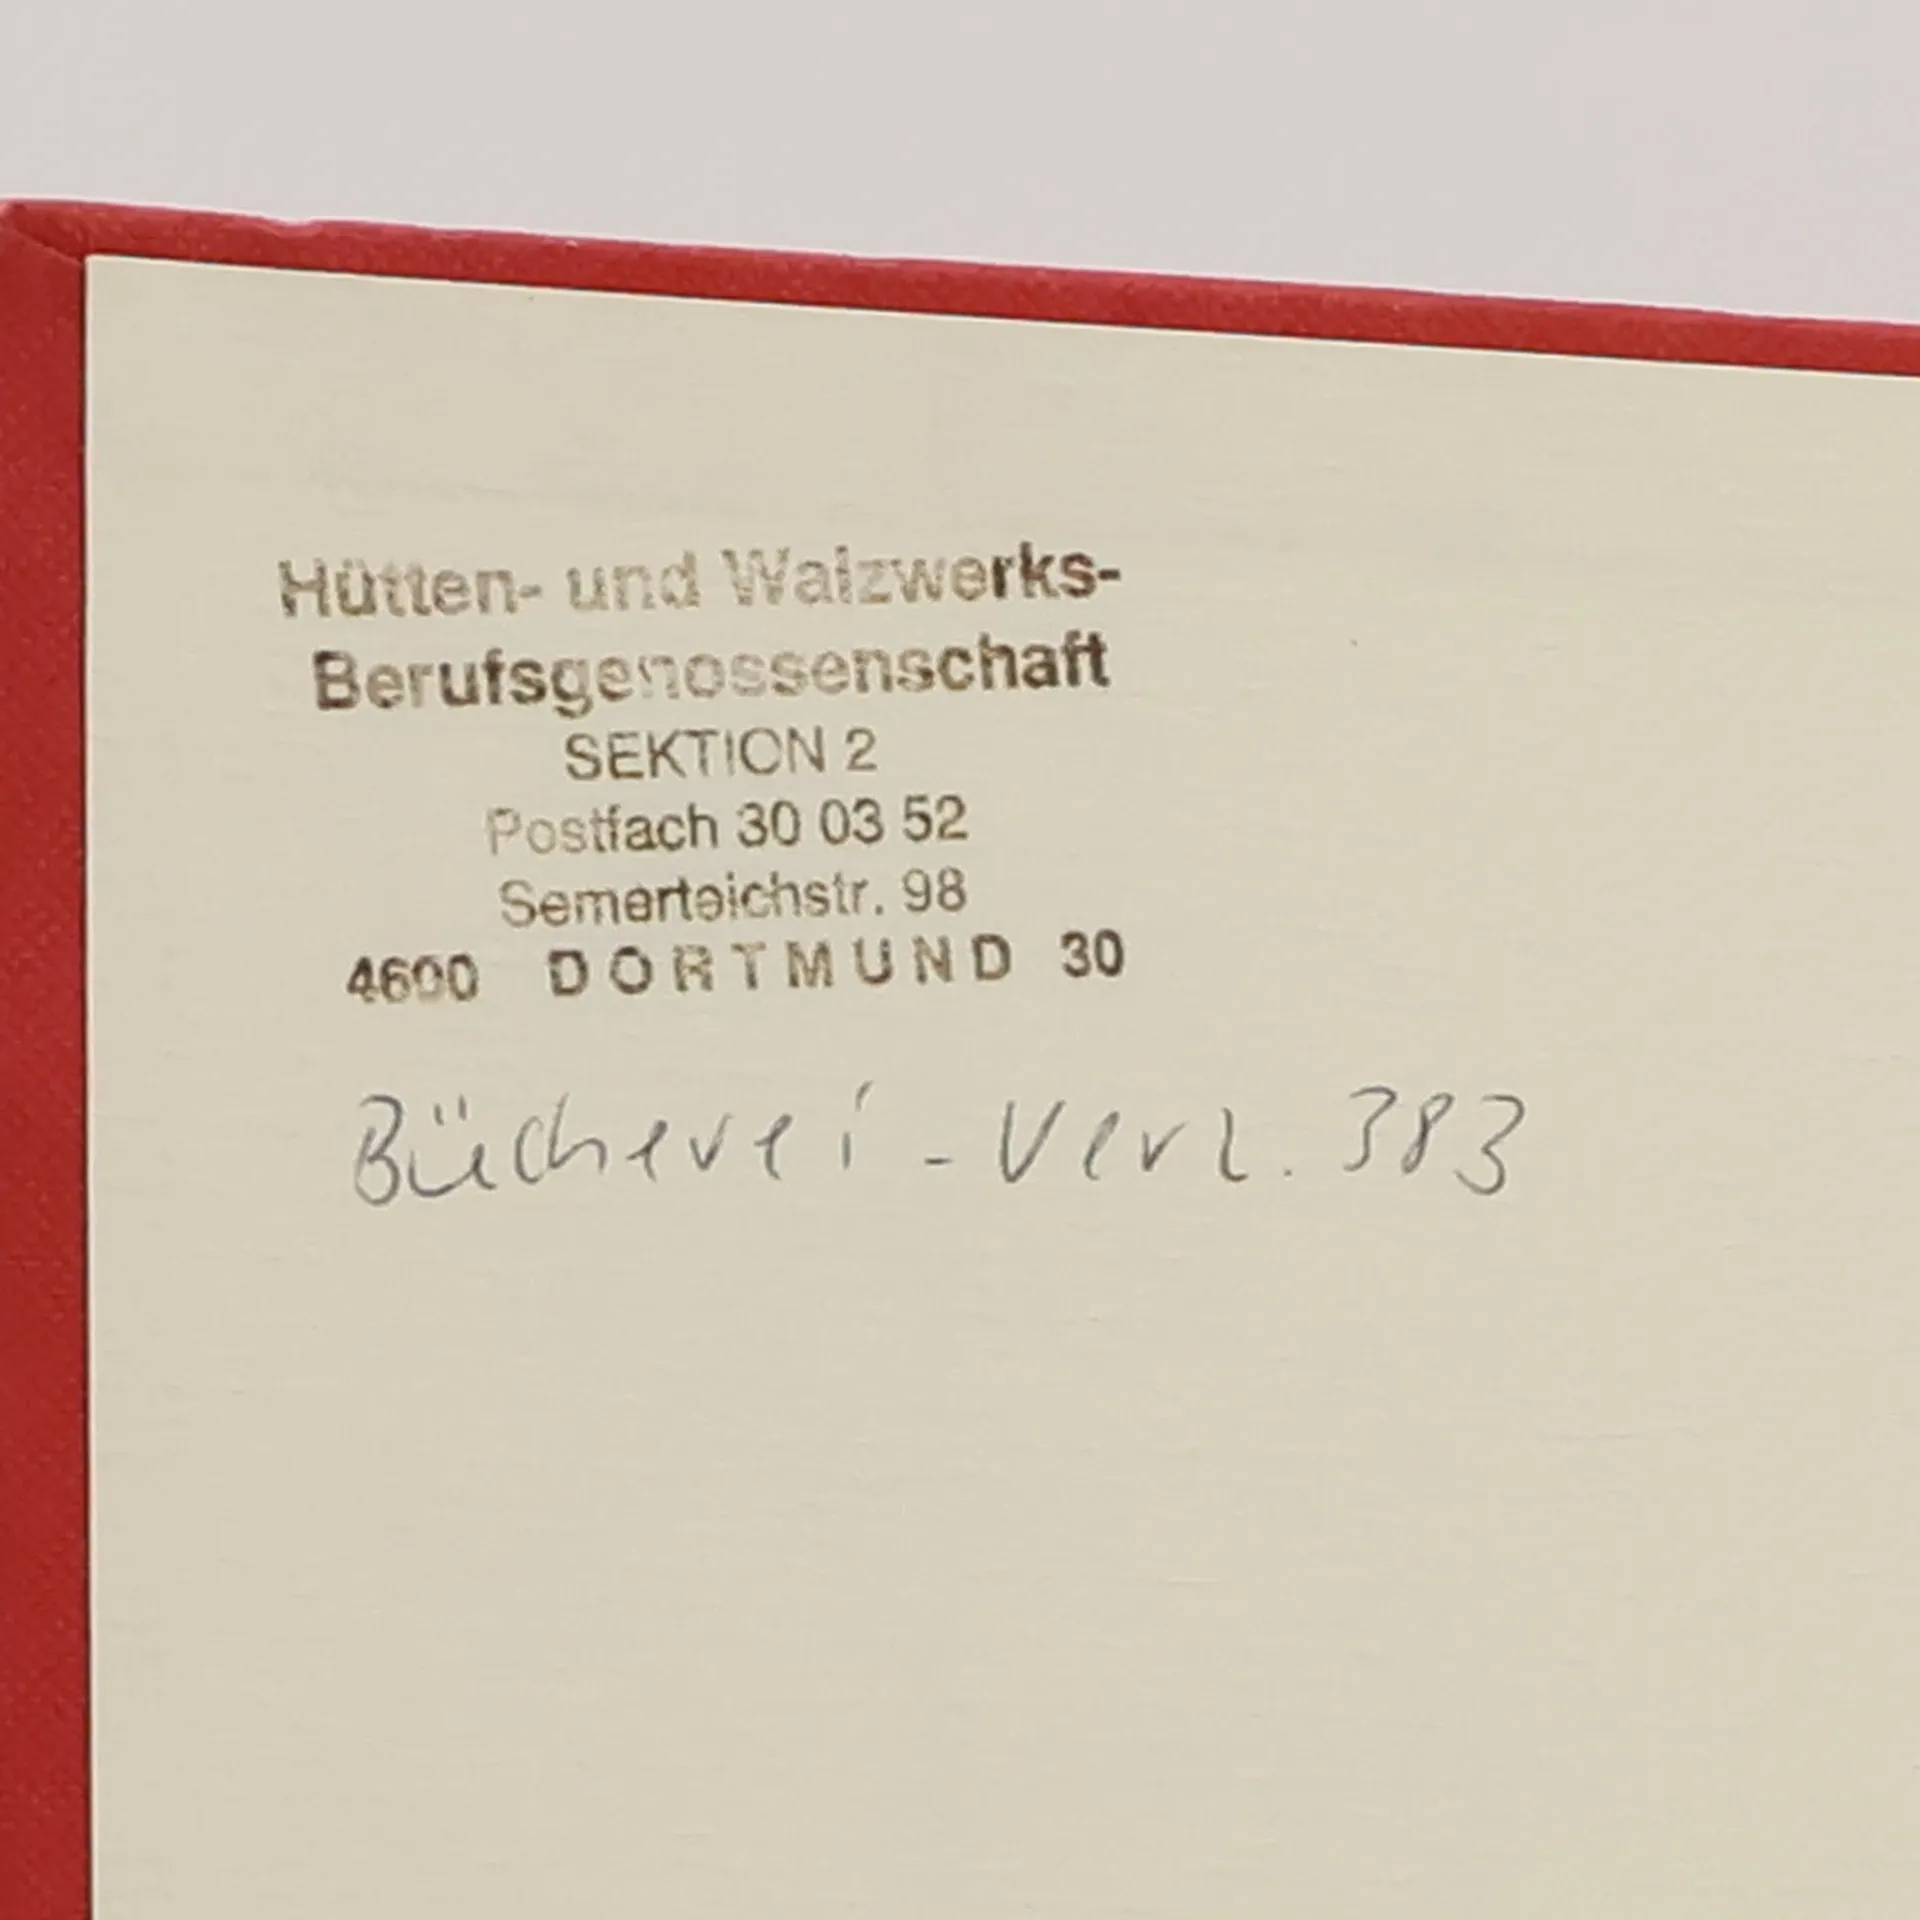 Hütten- und Walzwerks-
Berufsgenossenschaft
SEKTION 2
Postfach 30 03 52
Semerteichstr. 98
4600 DORTMUND 30
Bücherei - Verz. 383